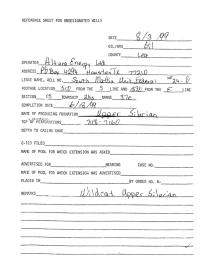 REFERENCE SHEET FOR UNDESIGNATED WELLS
DATE 8/3/99
OIL/GAS Oil
COUNTY Lea
OPERATOR Altura Energy Ltd.
ADDRESS PO Box 4294 Houston TX 77210
LEASE NAME, WELL NO. South Mattix Unit Federal #
FOOTAGE LOCATION FROM THE S LINE AND FROM THE E LINE
SECTION 15 TOWNSHIP 24s RANGE 37e
COMPLETION DATE 6/18/99
NAME OF PRODUCING FORMATION Upper Silurian
TOP OF PERFORATIONS
DEPTH TO CASING SHOE
C-123 FILED
NAME OF POOL FOR WHICH EXTENSION WAS ASKED
ADVERTISED FOR HEARING CASE NO.
NAME OF POOL FOR WHICH EXTENSION WAS ADVERTISED
PLACED IN BY ORDER NO. R-
REMARKS Wildcat Upper Silurian